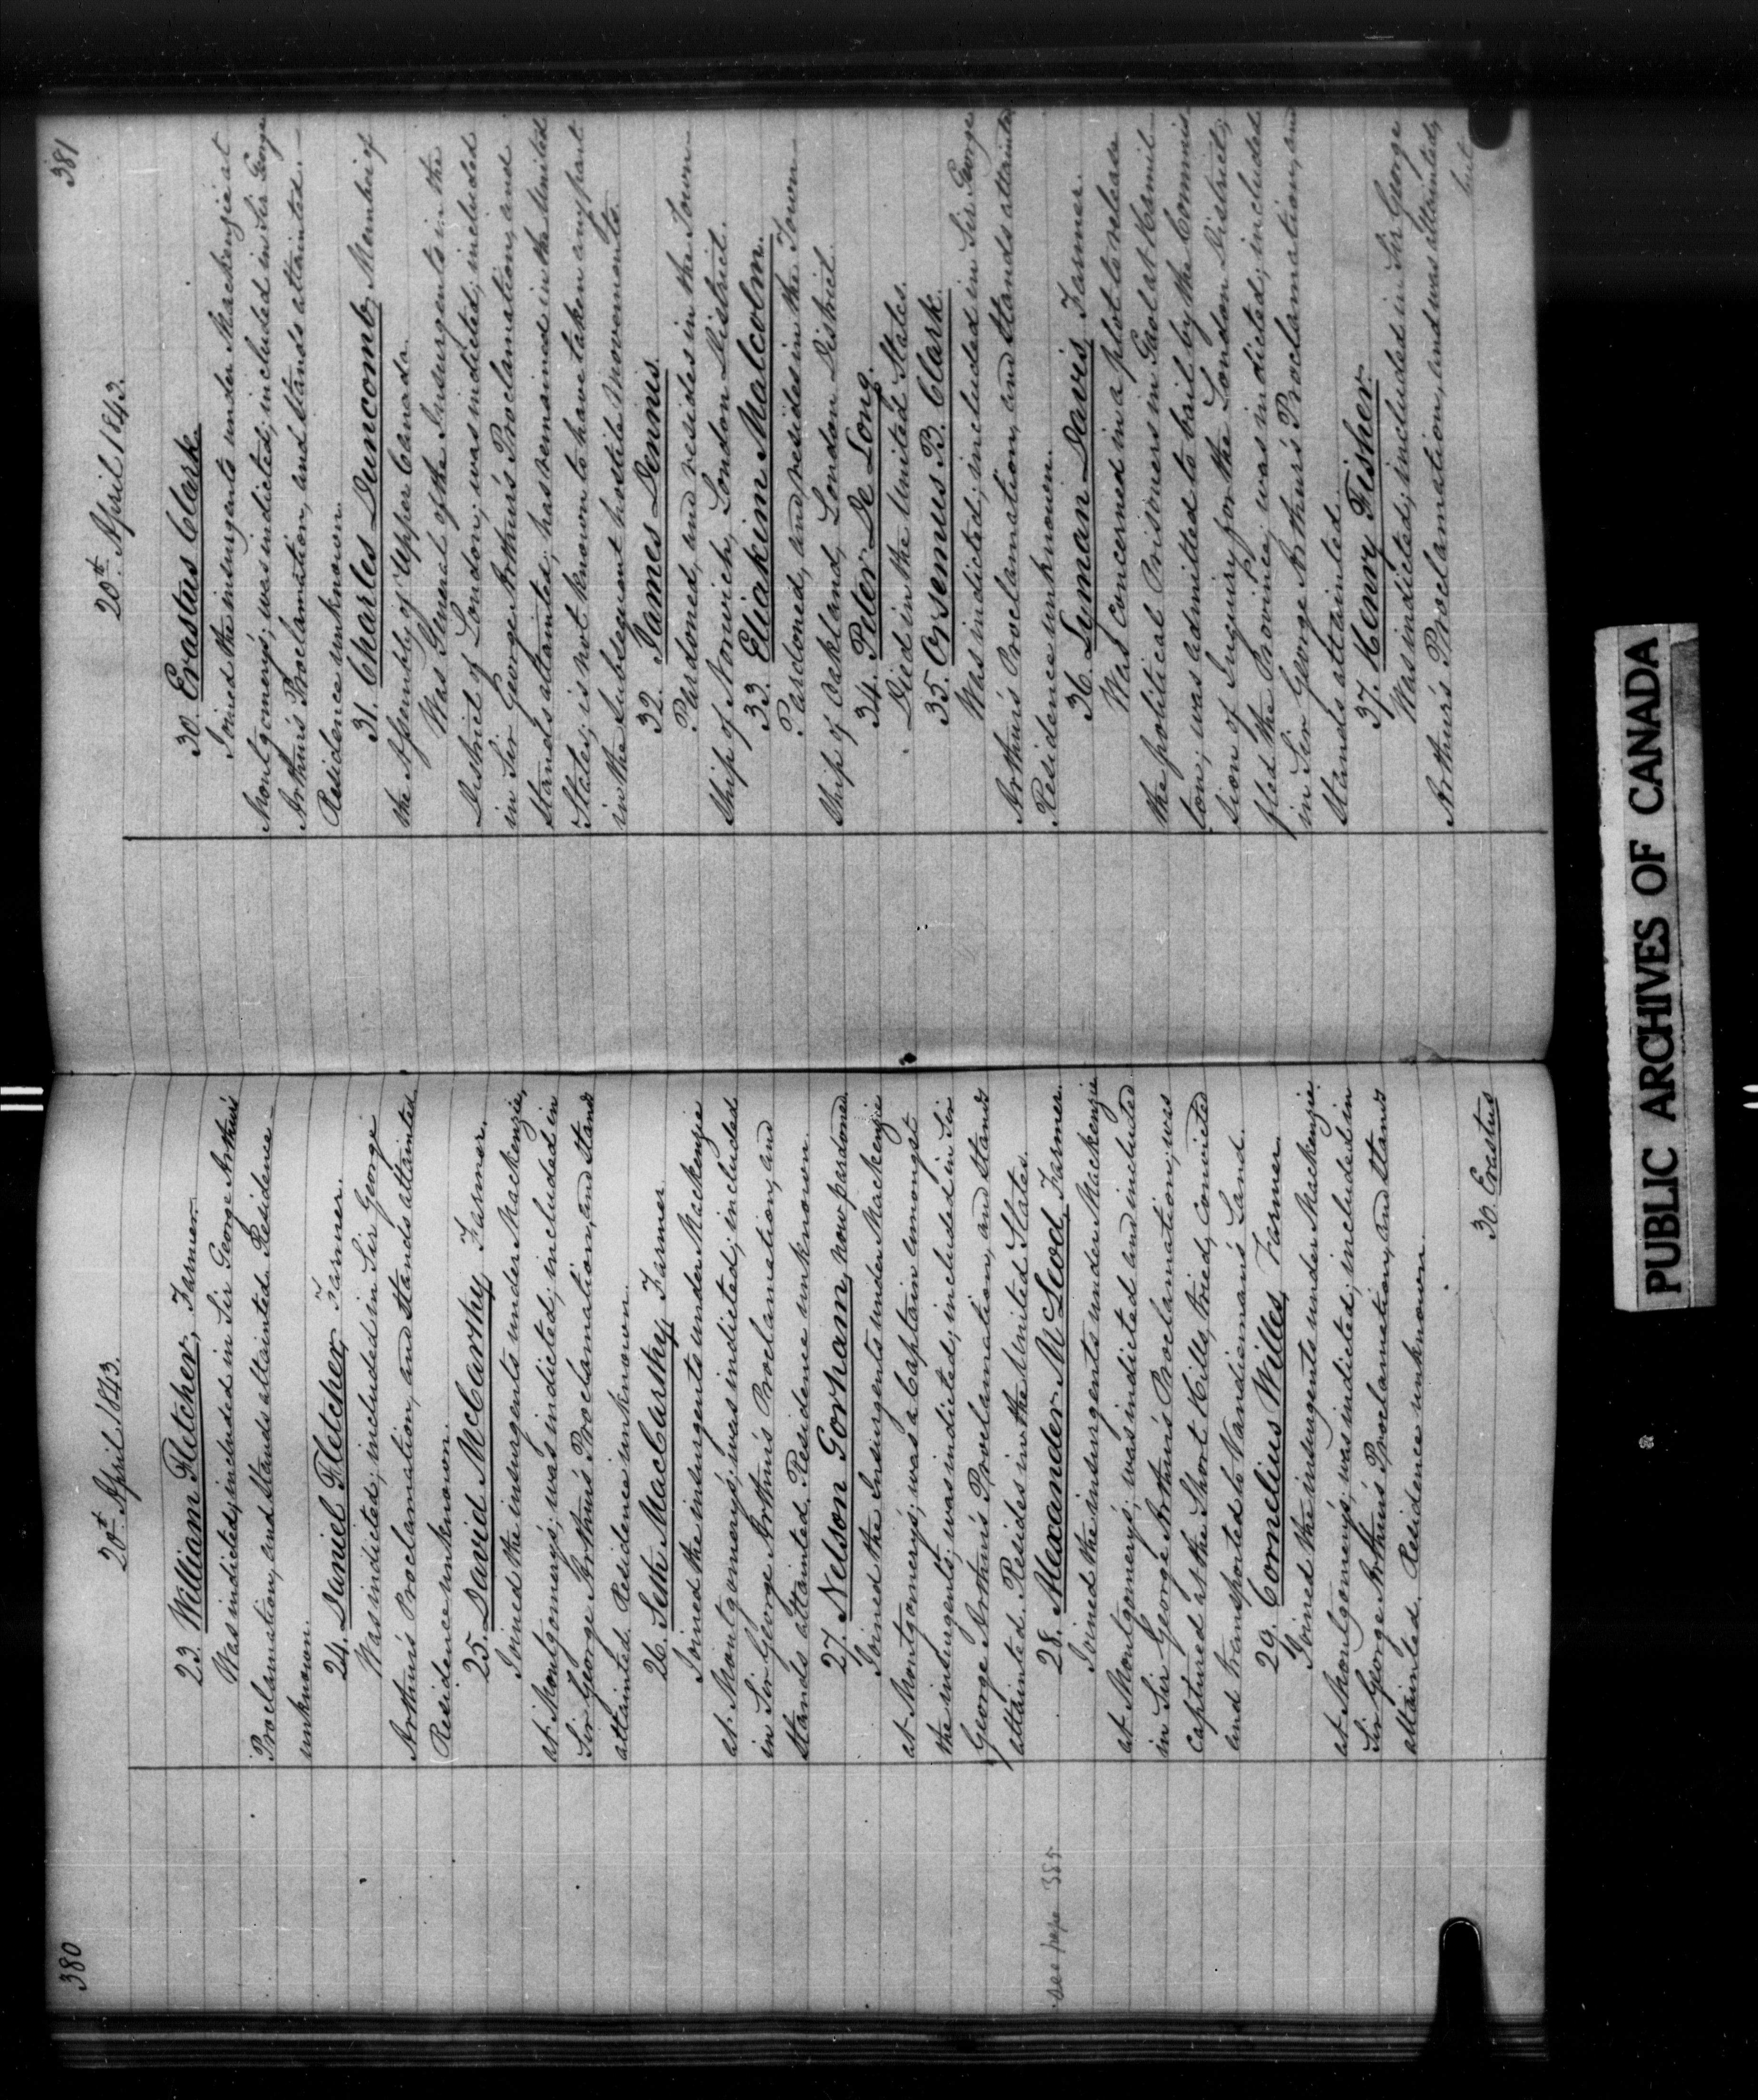 380
20th April 1843.
23. William Fletcher, Farmer.
Was indicted; included in Sir George Arthur's
Proclamation, and stands attainted. Residence
unknown.
24. Daniel Fletcher, Farmer.
Was indicted; included in Sir George
Arthur's Proclamation, and stands attainted.
Residence unknown.
25. David McCarthy, Farmer.
Joined the insurgents under Mackenzie,
at Montgomery's; was indicted; included in
Sir George Arthur's Proclamation, and stands
attainted. Residence unknown.
26. Seth MacCarthy, Farmer.
Joined the insurgents under Mackenzie
at Montgomery's; was indicted; included
in Sir George Arthur's Proclamation, and
stands attainted. Residence unknown.
27. Nelson Gorham, now pardoned
Joined the Insurgents under Mackenzie
at Montgomery's; was a Captain amongst
the insurgents; was indicted; included in Sir
George Arthur's Proclamation, and stands
attainted. Resides in the United States.
see page 385
28. Alexander McLeod, Farmer.
Joined the insurgents under Mackenzie
at Montgomery's; was indicted and included
in Sir George Arthur's Proclamation; was
captured at the Short Hills, tried, convicted
and transported to Van Dieman's Land.
29. Cornelius Willes, Farmer.
Joined the insurgents under Mackenzie
at Montgomery's; was indicted; included in
Sir George Arthur's Proclamation, and stands
attainted. Residence unknown.
30. Erastus
381
20th April 1843.
30. Erastus Clark.
Joined the insurgents under Mackenzie at
Montgomery's; was indicted; included in Sir George
Arthur's Proclamation, and stands attainted.—
Residence unknown.
31. Charles Duncomb, Member of
the Assembly of Upper Canada.
Was General of the Insurgents in the
District of London; was indicted; included
in Sir George Arthur's Proclamation, and
stands attainted; has remained in the United
States; is not known to have taken any part
in the subsequent hostile movements.
32. James Dennis.
Pardoned, and resides in the Town-
ship of Norwich, London District.
33. Eliakim Malcolm.
Pardoned, and resides in the Town-
ship of Oakland, London District.
34. Peter De Long.
Died in the United States.
35. Orsemus B. Clark.
Was indicted; included in Sir George
Arthur's Proclamation, and stands attainted.
Residence unknown.
36. Lyman Davis, Farmer.
Was concerned in a plot to release
the political Prisoners in Gaol at Hamil-
ton; was admitted to bail by the Commis
sion of Inquiry for the London District;
fled the Province; was indicted; included
in Sir George Arthur's Proclamation, and
stands attainted.
37. Henry Fisher.
Was indicted; included in Sir George
Arthur's Proclamation, and was attainted,
but
PUBLIC ARCHIVES OF CANADA